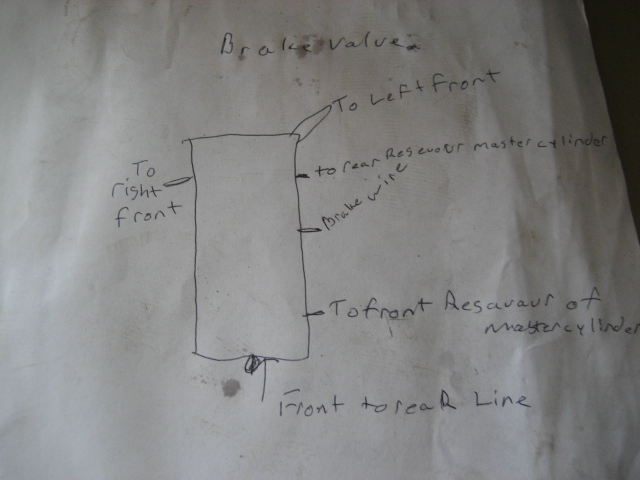 Brake valve
To Left front
to rear Resevour mastercylinder
To
right
front
Brake wire
To front Resavaur of
mastercylinder
Front to reaR Line